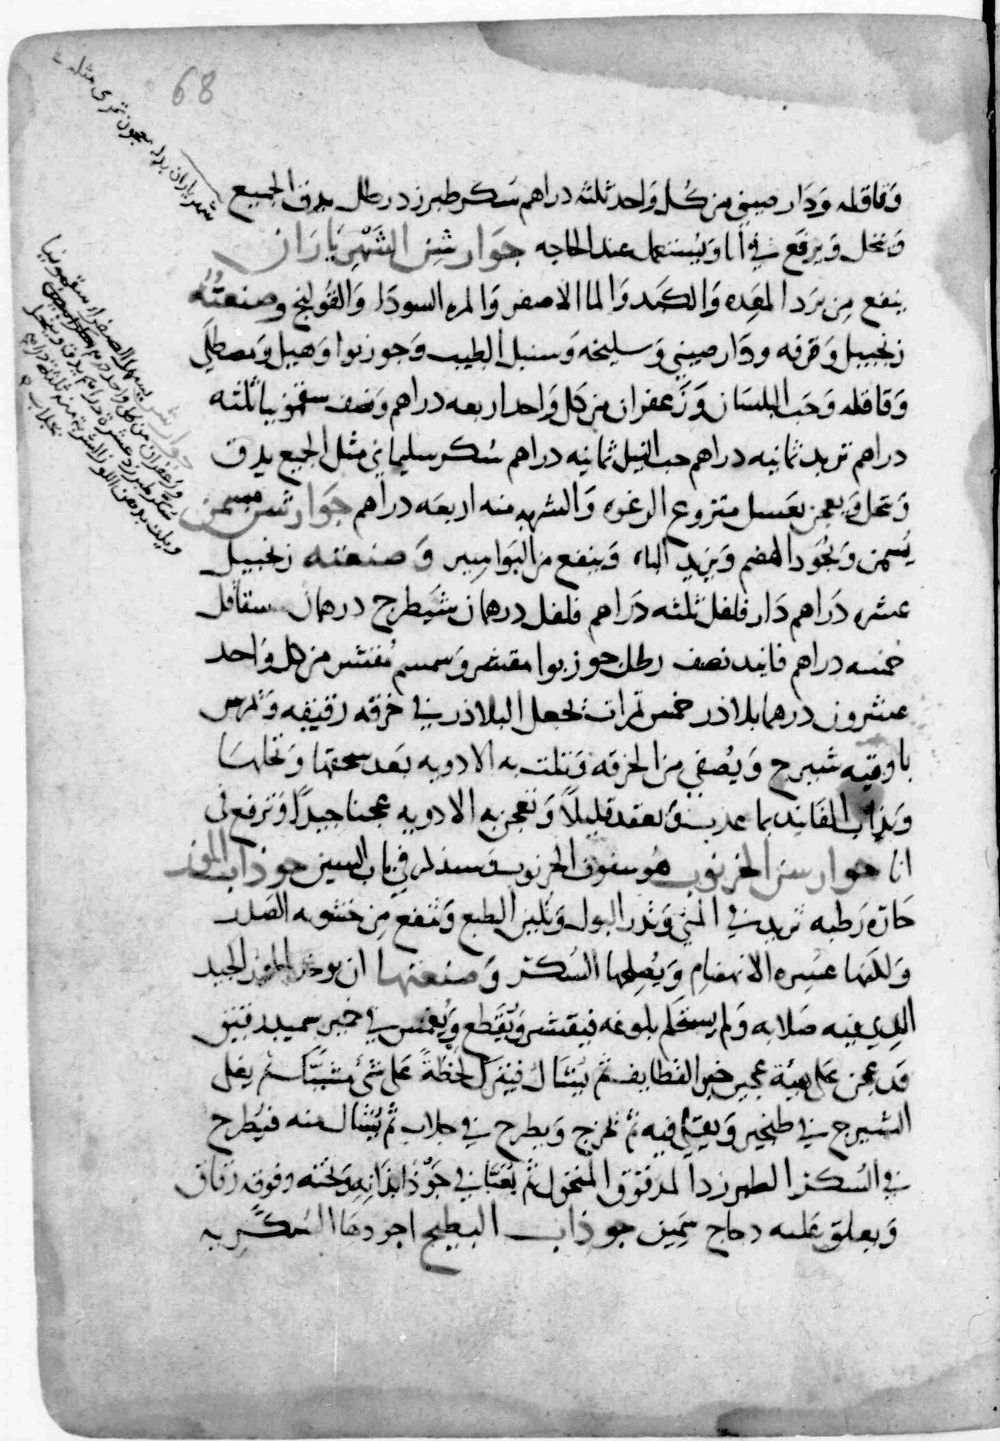 68
وقاقله ودار صيني من كل واحد ثلثه دراهم سكر طبرزد رطل يدق الجميع
وينخل ويرفع في انا ويستعمل عند الحاجه جوارشن الشهرياران
ينفع من برد المعده والكبد والما الاصفر والمره السودا والقولنج وصنعته
زنجبيل وقرفه ودار صيني وسليخه وسنبل الطيب وجوزبوا وهيل ومصطكي
وقاقله وحب البلسان وزعفران من كل واحد اربعه دراهم ونصف سقمونيا ثلثه
دراهم تربد ثمانيه دراهم حب النيل ثمانيه دراهم سكر سليماني مثل الجميع يدق
وينخل ويعجن بعسل منزوع الرغوه والشربه منه اربعه دراهم جوارشن مسمن
يسمن ويجود الهضم ويزيد الباه وينفع من البواسير وصنعته زنجبيل
عشره دراهم دار فلفل ثلثه دراهم فلفل درهمان شيطرج درهمان سقاقل
خمسه دراهم فانيد نصف رطل جوزبوا مقشر وسمسم مقشر من كل واحد
عشرون درهما بلاذر خمس تمرات يجعل البلاذر في خرقه رقيقه وتمرس
باوقيه شيرج ويصفي من الخرقه وتلت به الادويه بعد سحقها ونخلها
ويذاب الفانيد بما عذب يعقد قليلا وتعجن به الادويه عجنا جيدا وترفع في
انا جوارشن الخرنوب هو سفوف الخرنوب سنذكر في باب السين جوذاب الموز
حاره رطبه تزيد في المني وتدر البول وتلين الطبع وتنفع من خشونه الصدر
ولكنها عسره الانهضام ويصلحها السكر وصنعتها ان يوخذ الموز الجيد
الذي فيه صلابه ولم يستحكم بلوغه فيقشر ويقطع ويغمس في خمير سميد رقيق
قد عجن على هيئة عجين خبز القطايف ثم ينشال فيترك لحظة على شئ مشبك ثم يغلى
الشيرج في طنجير ويقلى فيه ثم تخرج ويطرح في جلاب ثم ينشال منه فيطرح
في السكر الطبرزد المدقوق المنخول ثم يعبا في جوذابدانه وتحته وفوقه رقاق
ويعلق عليه دجاج سمين جوذاب البطيخ اجودها السكريه
شهرياران
جوارشن
يسهل الصفراء سقمونيا